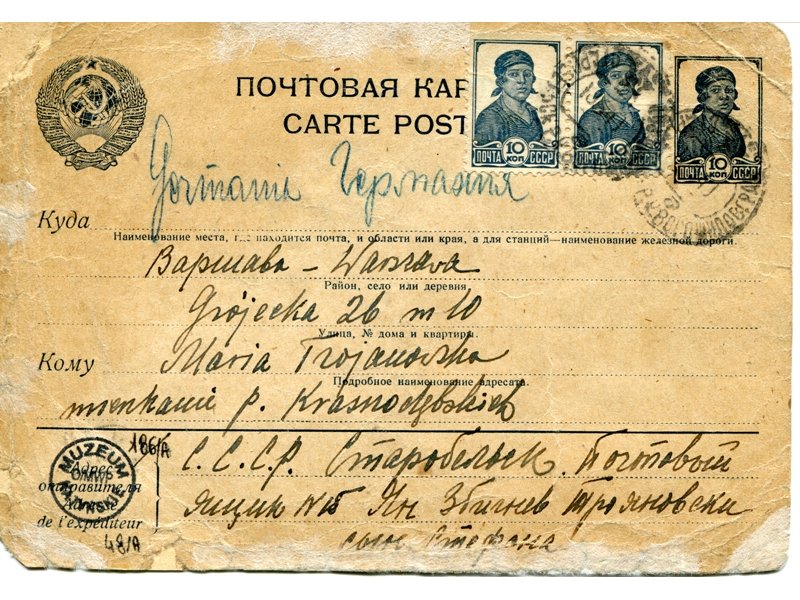 ПОЧТОВАЯ КАР
CARTE POST
ПОЧТА 10 КОП СССР
ПОЧТА 10 КОП СССР
ПОЧТА 10 КОП СССР
Germania Германия
Куда
Наименование места, где находится почта, и области или края, а для станций—наименование железной дороги.
Варшава - Warszawa
Район, село или деревня.
Grójecka 26 m 10
Улица, № дома и квартиры.
Кому Maria Trojanowska
Подробное наименование адресата.
mieszkanie p. Krasnodębskich
186/A
MUZEUM
Адрес С.С.С.Р. Старобельск. Почтовый
отправителя ящик №15 Ян Збигнев Трояновски
de l'expéditeur сын Стефана
48/A